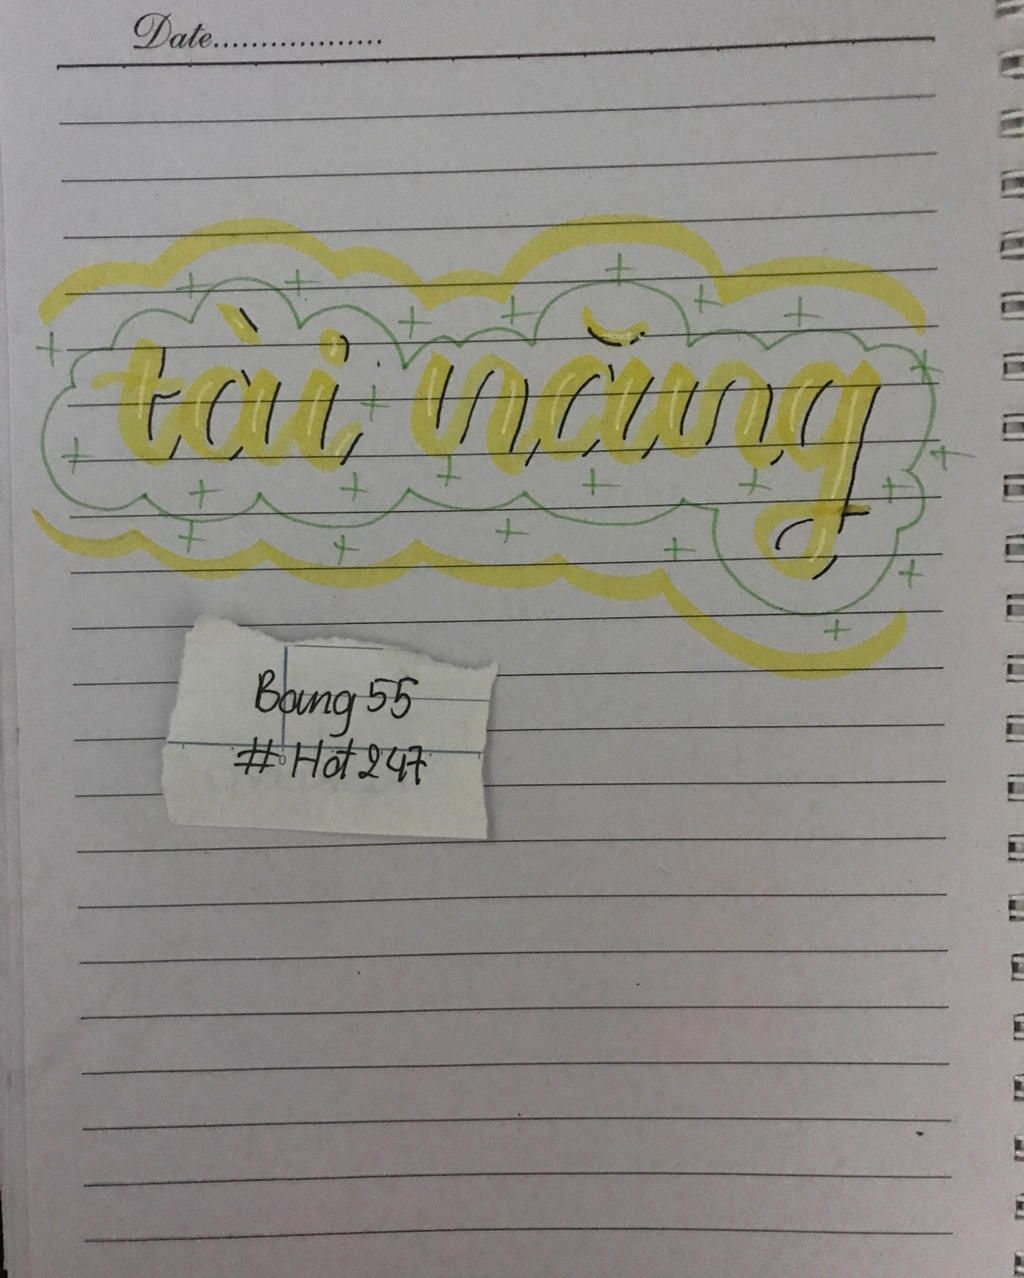 Date..................
tài năng
Bang 55
# Hot 247